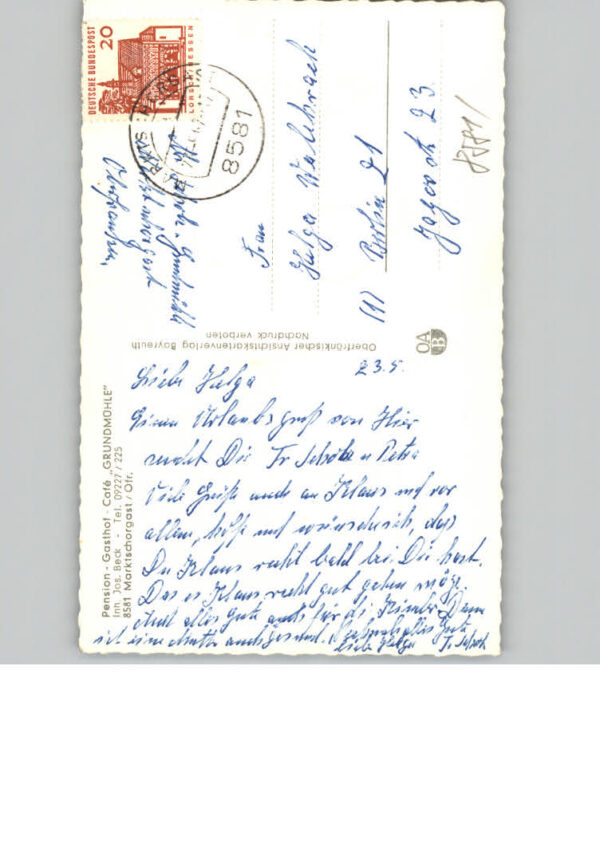 Pension - Gasthof - Café „GRUNDMÜHLE"
Inh. Jos. Beck - Tel. 09227 / 225
8581 Marktschorgast / Ofr.
23.5.
Liebe Helga
Einen Urlaubsgruß von Hier
sendet Dir Fr Schötz u Petra
Viele Grüße auch an Klaus und vor
allem, hoffe und wünsche ich, daß
Du Klaus recht bald bei Dir hast.
Das es Klaus recht gut gehen möge
und alles Gute auch für die Kinder Denn
ich eine Mutter
alles Gute
liebe Helga Fr Schötz
Oberfränkischer Ansichtskartenverlag Bayreuth
Nachdruck verboten
OA
B
DEUTSCHE BUNDESPOST
20
LORSCH HESSEN
8581
Grundmühl
Frau
Helga
(1) Berlin 21
Jagowstr 23